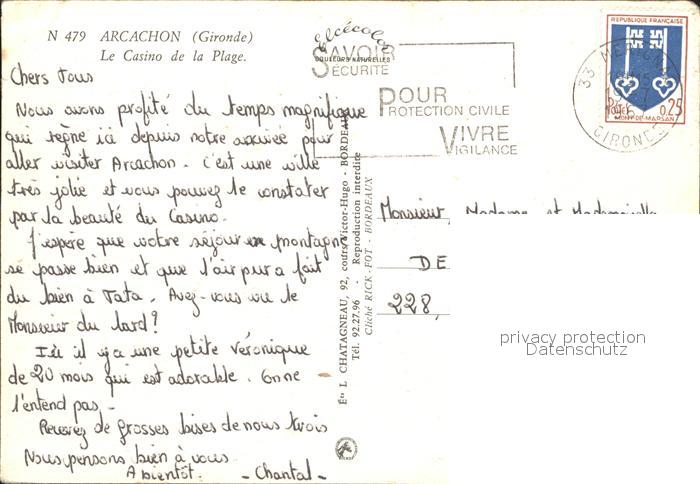 N 479 ARCACHON (Gironde)
Le Casino de la Plage.
Elcécolor
COULEURS NATURELLES
SAVOIR
SÉCURITÉ
POUR
PROTECTION CIVILE
VIVRE
VIGILANCE
33
GIRONDE
REPUBLIQUE FRANÇAISE
POSTES 0,25
MONT-DE-MARSAN
Chers Tous
Nous avons profité du temps magnifique
qui règne ici depuis notre arrivée pour
aller visiter Arcachon. C'est une ville
très jolie et vous pouvez le constater
par la beauté du Casino.
J'espère que votre séjour en montagne
se passe bien et que l'air pur a fait
du bien à Tata. Avez-vous vu le
Monsieur du lard?
Ici il y a une petite Véronique
de 20 mois qui est adorable. On ne
l'entend pas.
Recevez de grosses bises de nous trois
Nous pensons bien à vous.
A bientôt. - Chantal -
Ets L. CHATAGNEAU, 92, cours Victor-Hugo - BORDEAUX
Tél. 92.27.96 - Reproduction interdite
Cliché RICK-FOT - BORDEAUX
Monsieur, Madame et Mademoiselle
DE
228,
privacy protection
Datenschutz